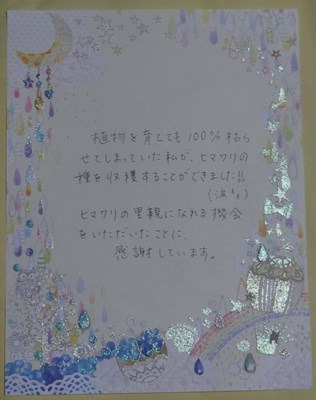 植物を育てても100%枯ら
せてしまっていた私が、ヒマワリの
種を収穫することができました!!
(涙)
ヒマワリの里親になれる機会
をいただいたことに、
感謝しています。